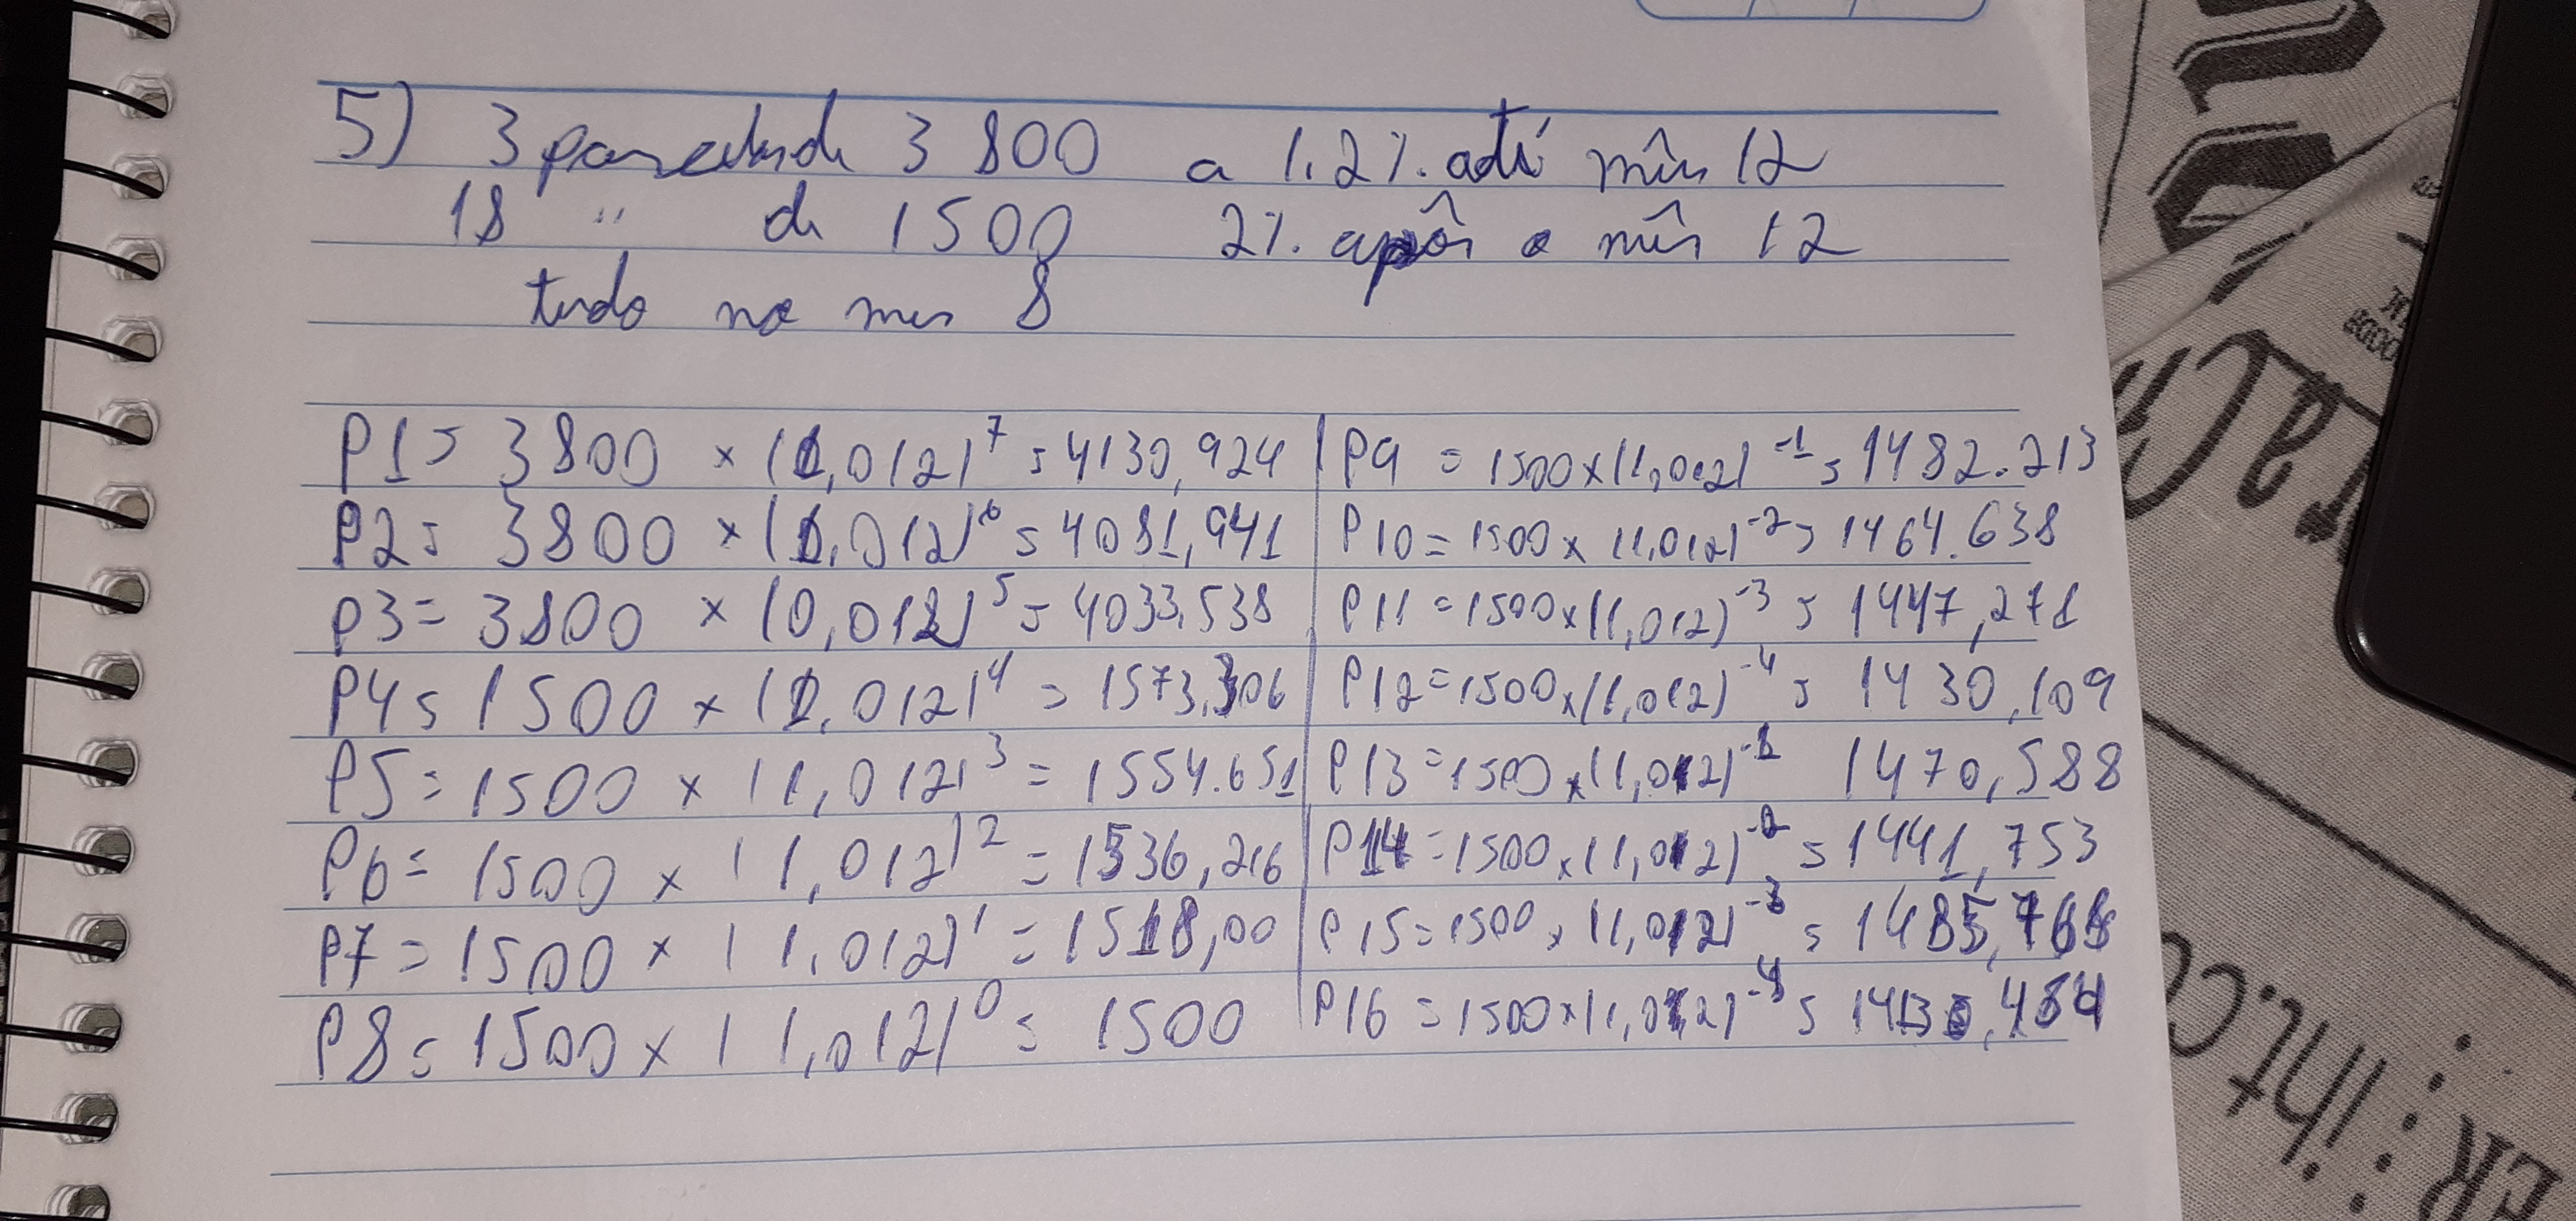 5) 3 parcelas de 3 800 a 1.2%. até mês 12
18 " de 1500 2%. após o mês 12
tudo no mes 8
P1= 3800 × (1,012)^7 = 4130,924
P2= 3800 × (1,012)^6 = 4081,941
P3= 3800 × (0,012)^5 = 4033,538
P4= 1500 × (1,012)^4 = 1573,306
P5= 1500 × (1,012)^3 = 1554.651
P6= 1500 × (1,012)^2 = 1536,216
P7= 1500 × (1,012)^1 = 1518,00
P8= 1500 × (1,012)^0 = 1500
P9 = 1500×(1,012)^-1 = 1482.213
P10= 1500× (1,012)^-2= 1464.638
P11 =1500×(1,012)^-3 = 1447,271
P12=1500×(1,012)^-4 = 1430,109
P13=1500×(1,02)^-1 1470,588
P14=1500×(1,02)^-2 = 1441,753
P15=1500×(1,02)^-3 =
P16=1500×(1,02)^-4 =
ER : : iht.co